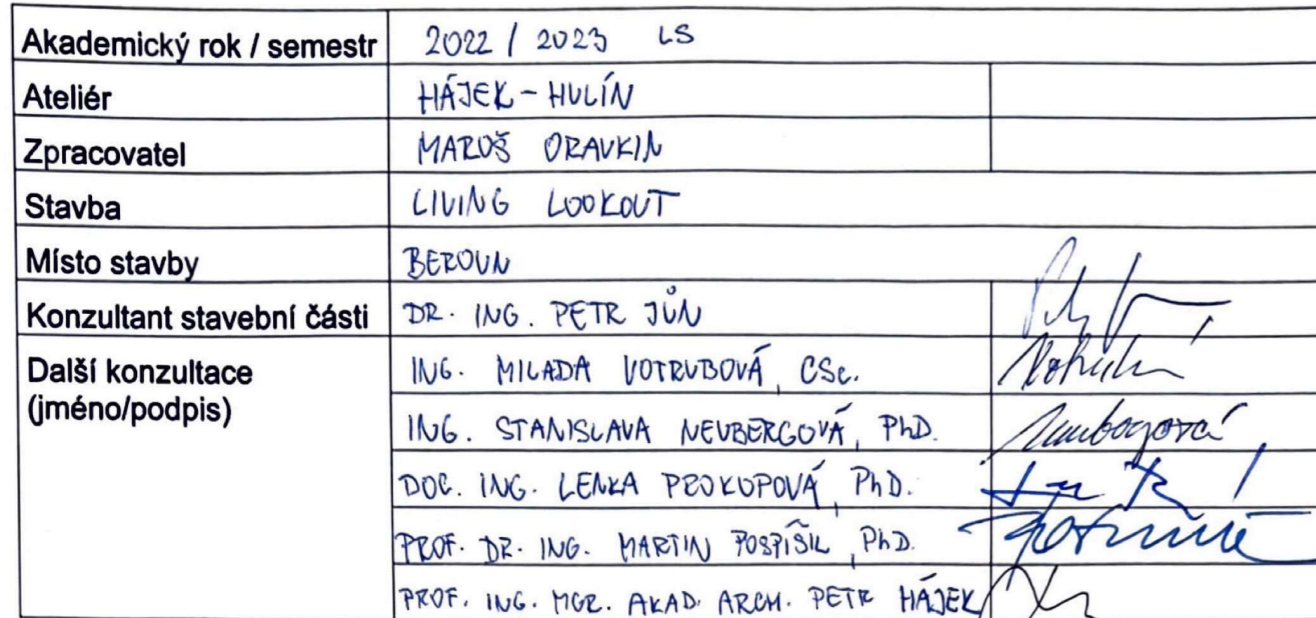 Akademický rok / semestr 2022 / 2023 LS
Ateliér HÁJEK - HULÍN
Zpracovatel MAROŠ ORAVKIN
Stavba LIVING LOOKOUT
Místo stavby BEROUN
Konzultant stavební části DR. ING. PETR JŮN
Další konzultace ING. MILADA VOTRUBOVÁ, CSc.
(jméno/podpis)
ING. STANISLAVA NEUBERGOVÁ, PhD. Neubergová
DOC. ING. LENKA PROKOPOVÁ, PhD.
PROF. DR. ING. MARTIN POSPÍŠIL, PhD.
PROF. ING. MGR. AKAD. ARCH. PETR HÁJEK